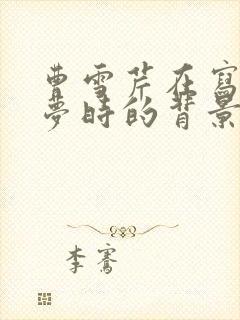 曹雪芹在寫
夢時的背景
李騫